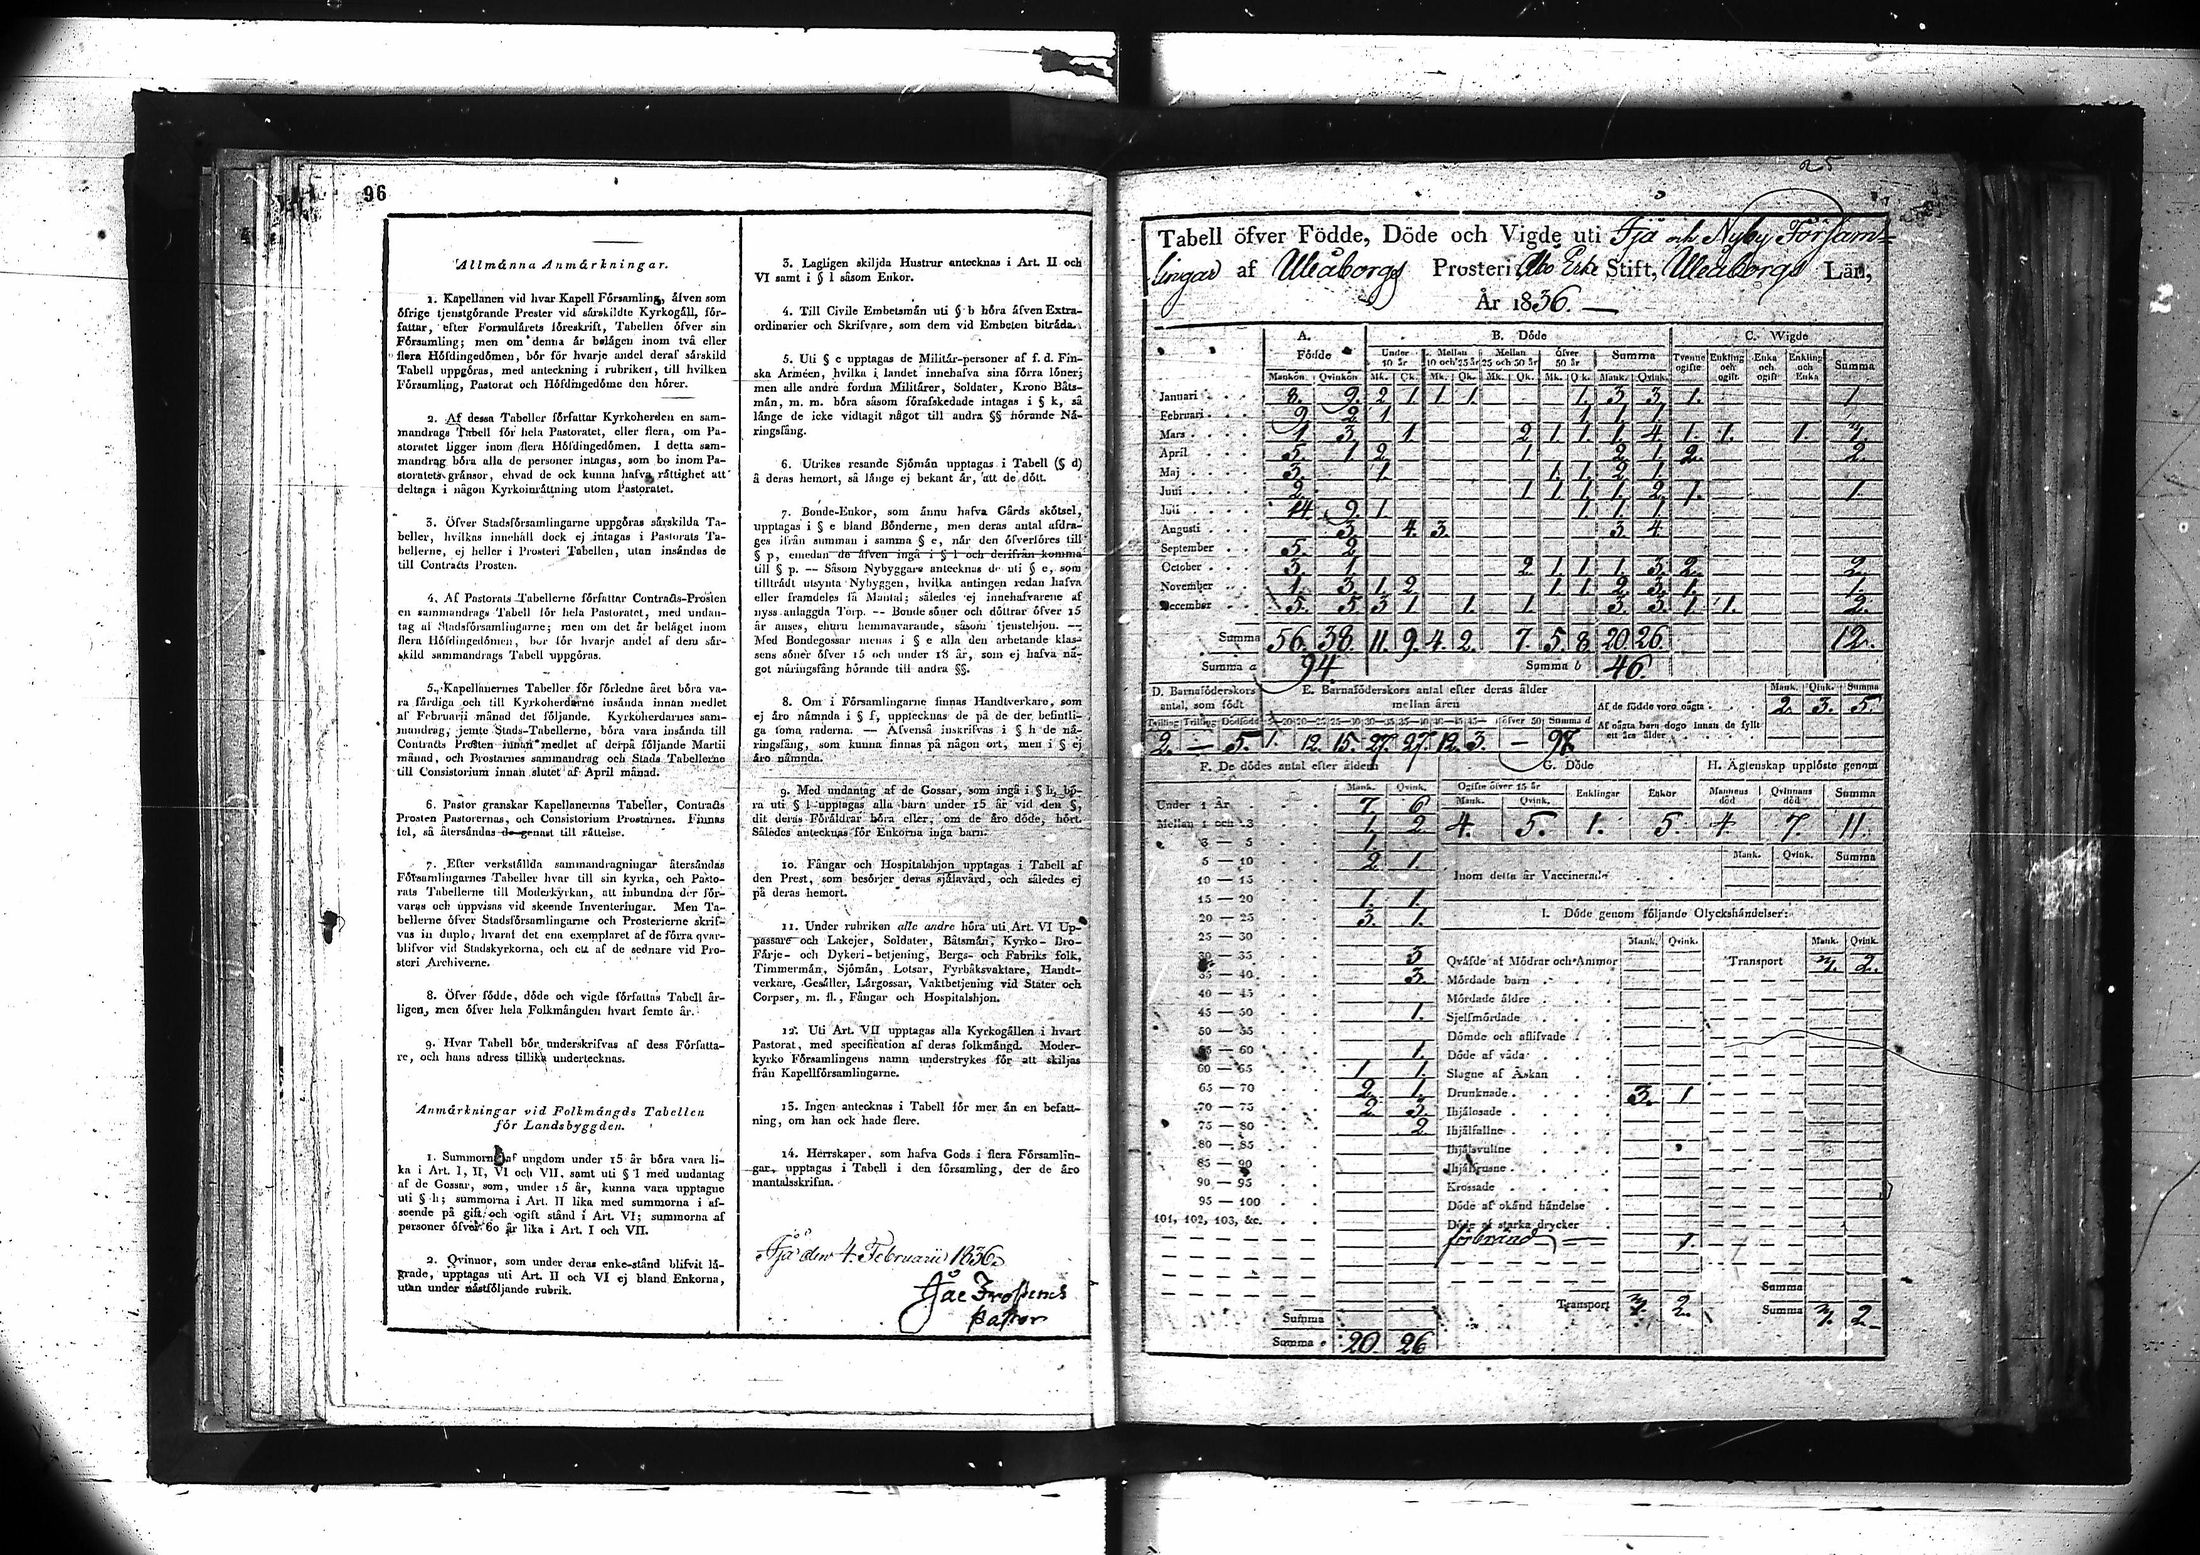 96
Allmänna Anmärkningar.
1. Kapellanen vid hvar Kapell Församling, äfven som
öfrige tjenstgörande Prester vid särskildte Kyrkogäll, för-
fattar, efter Formulärets föreskrift, Tabellen öfver sin
Församling; men om denna är belägen inom två eller
flera Höfdingedömen, bör för hvarje andel deraf särskild
Tabell uppgöras, med anteckning i rubriken, till hvilken
Församling, Pastorat och Höfdingedöme den hörer.
2. Af dessa Tabeller författar Kyrkoherden en sam-
mandrags Tabell för hela Pastoratet, eller flera, om Pa-
storatet ligger inom flera Höfdingedömen. I detta sam-
mandrag böra alla de personer intagas, som bo inom Pa-
storatets gränsor, ehvad de ock kunna hafva råttighet att
deltaga i någon Kyrkoinrättning utom Pastoratet.
3. Öfver Stadsförsamlingarne uppgöras särskilda Ta-
beller, hvilkas innehåll dock ej intages i Pastorats Ta-
bellerne, ej heller i Prosteri Tabellen, utan insändas de
till Contracts Prosten.
4. Af Pastorats Tabellerne författar Contracts-Prosten
en sammandrags Tabell för hela Pastoratet, med undan-
tag af Stadsförsamlingarne; men om det är beläget inom
flera Höfdingedömen, bör för hvarje andel af dem sär-
skild sammandrags Tabell uppgöras.
5. Kapellanernes Tabeller för förledne året böra va-
ra färdiga och till Kyrkoherdarne insända innan medlet
af Februarii månad det följande. Kyrkoherdarnes sam-
mandrag, jemte Stads-Tabellerne, böra vara insända till
Contracts Prosten innan medlet af derpå följande Martii
månad, och Prostarnes sammandrag och Stads Tabellerne
till Consistorium innan slutet af April månad.
6. Pastor granskar Kapellanernas Tabeller, Contracts
Prosten Pastorernas, och Consistorium Prostarnes. Finnas
fel, så återsändas de genast till råttelse.
7. Efter verkställda sammandragningar återsändas
Församlingarnes Tabeller hvar till sin kyrka, och Pasto-
rats Tabellerne till Moderkyrkan, att inbundna der för-
varas och uppvisas vid skeende Inventeringar. Men Ta-
bellerne öfver Stadsförsamlingarne och Prosterierne skrif-
vas in duplo, hvaraf det ena exemplaret af de förra qvar-
blifver vid Stadskyrkorna, och ett af de sednare vid Pro-
steri Archiverne.
8. Öfver födde, döde och vigde författas Tabell år-
ligen, men öfver hela Folkmängden hvart femte år.
9. Hvar Tabell bör underskrifvas af dess Författa-
re, och hans adress tillika undertecknas.
Anmärkningar vid Folkmängds Tabellen
för Landsbyggden.
1. Summorna af ungdom under 15 år böra vara li-
ka i Art. I, II, VI och VII, samt uti § I med undantag
af de Gossar, som, under 15 år, kunna vara upptagne
uti § h; summorna i Art. II lika med summorna i af-
seende på gift och ogift stånd i Art. VI; summorna af
personer öfver 60 år lika i Art. I och VII.
2. Qvinnor, som under deras enke-stånd blifvit lä-
grade, upptagas uti Art. II och VI ej bland Enkorna,
utan under nästföljande rubrik.
3. Lagligen skiljda Hustrur antecknas i Art. II och
VI samt i § l såsom Enkor.
4. Till Civile Embetsmän uti § b höra äfven Extra-
ordinarier och Skrifvare, som dem vid Embeten biträda.
5. Uti § c upptagas de Militär-personer af f. d. Fin-
ska Arméen, hvilka i landet innehafva sina förra löner;
men alle andre fordna Militärer, Soldater, Krono Båts-
män, m. m. böra såsom förafskedade intagas i § k, så
länge de icke vidtagit något till andra §§ hörande Nä-
ringsfång.
6. Utrikes resande Sjömän upptagas i Tabell (§ d)
å deras hemort, så länge ej bekant är, att de dött.
7. Bonde-Enkor, som ännu hafva Gårds skötsel,
upptagas i § e bland Bönderne, men deras antal afdra-
ges ifrån summan i samma § e, när den öfverföres till
§ p, emedan de äfven ingå i § l och derifrån komma
till § p. — Såsom Nybyggare antecknas de uti § e, som
tillträdt utsynta Nybyggen, hvilka antingen redan hafva
eller framdeles få Mantal; således ej innehafvarene af
nyss anlaggda Torp. — Bonde söner och döttrar öfver 15
år anses, ehuru hemmavarande, såsom tjenstehjon. —
Med Bondegossar menas i § e alla den arbetande klas-
sens söner öfver 15 och under 18 år, som ej hafva nå-
got näringsfång hörande till andra §§.
8. Om i Församlingarne finnas Handtverkare, som
ej äro nämnda i § f, upptecknas de på de der befintli-
ga toma raderna. — Äfvenså inskrifvas i § h de nä-
ringsfång, som kunna finnas på någon ort, men i § ej
äro nämnda.
9. Med undantag af de Gossar, som ingå i § h, bö-
ra uti § l upptagas alla barn under 15 år vid den §,
dit deras Föräldrar höra eller, om de äro döde, hört.
Således antecknas för Enkorna inga barn.
10. Fångar och Hospitalshjon upptagas i Tabell af
den Prest, som besörjer deras själavård, och således ej
på deras hemort.
11. Under rubriken alle andre höra uti Art. VI Up-
passare och Lakejer, Soldater, Båtsmän, Kyrko- Bro-
Färje- och Dykeri-betjening, Bergs- och Fabriks folk,
Timmermän, Sjömän, Lotsar, Fyrbåksvaktare, Handt-
verkare, Gesäller, Lärgossar, Vaktbetjening vid Stater och
Corpser, m. fl., Fångar och Hospitalshjon.
12. Uti Art. VII upptagas alla Kyrkogällen i hvart
Pastorat, med specification af deras folkmängd. Moder-
kyrko Församlingens namn understrykes för att skiljas
från Kapellförsamlingarne.
13. Ingen antecknas i Tabell för mer än en befatt-
ning, om han ock hade flere.
14. Herrskaper, som hafva Gods i flera Församlin-
gar, upptagas i Tabell i den församling, der de äro
mantalsskrifna.
Ijå den 4. Februarii 1836.
Pastor
25
Tabell öfver Födde, Döde och Vigde uti Ijå och Nyby Försam-
lingar af Uleåborgs Prosteri Åbo Erke Stift, Uleåborgs Län,
År 1836.
A. B. Döde C. Wigde
Födde Under 10 år Mellan 10 och 25 år Mellan 25 och 50 år öfver 50 år Summa Tvenne ogifte Enkling och ogift Enka och ogift Enkling och Enka Summa
Mankön Qvinkön Mk. Qk. Mk. Qk. Mk. Qk. Mk. Qk. Mank. Qvink.
Januari 8. 9. 2 1 1 1 1. 3 3 1. 1
Februari 9 2 1 1 1 1
Mars 1 3 1 2 1 1. 1. 4 1. 1. 1.
April 5. 1 2 1 2 1. 2. 2.
Maj 3. 1 1 1. 2 1
Juni 2. 1 1 1 1. 2 1. 1.
Juli 14 9. 1 1. 1 1
Augusti 3 4. 3. 3 4
September 5. 2
October 3. 1 2 1 1 1. 3 2. 2.
November 1 3 1 2 1 1 2 3 1. 1.
December 5. 5 3 1 1. 1 3 3 1 1. 2.
Summa 56. 38. 11. 9. 4. 2. 7. 5. 8. 20. 26. 12.
Summa a 94. Summa b 46.
D. Barnaföderskors antal, som födt E. Barnaföderskors antal efter deras ålder mellan åren
Mank. Qvink. Summa
Af de födde voro oägta 2. 3. 5.
Af oägta barn dogo innan de fyllt ett års ålder
Tvilling Trilling Dödfödd 20—25 25—30 30—35 35—40 öfver 50 Summa d
2. — 5. 1. 12. 15. 27. 27. 12. 3. — 97.
F. De dödes antal efter åldern G. Döde H. Ägtenskap upplöste genom
Mank. Qvink. Ogifte öfver 15 år Mank. Qvink. Enklingar Enkor Mannens död Qvinnans död Summa
4. 5. 1. 5 4. 7. 11.
Under 1 År 7. 6.
Mellan 1 och 3 1. 2
3 — 5 1.
5 — 10 2 1.
10 — 15
15 — 20 1. 1.
20 — 25 3. 1.
25 — 30
30 — 35 3
35 — 40 3.
40 — 45
45 — 50 1.
50 — 55
55 — 60 1.
60 — 65 1 1.
65 — 70 2. 1.
70 — 75 2. 3.
75 — 80 2
80 — 85
85 — 90
90 — 95
95 — 100
101, 102, 103, &c.
Summa
Summa e 20. 26
Mank. Qvink. Summa
Inom detta år Vaccinerade
I. Döde genom följande Olyckshändelser:
Mank. Qvink. Mank. Qvink.
Qväfde af Mödrar och Ammor Transport 2.
Mördade barn
Mördade äldre
Sjelfmördade
Dömde och aflifvade
Döde af våda
Slagne af Åskan
Drunknade 3. 1
Ihjälosade
Ihjälfallne
Ihjälsvultne
Ihjälfrusne
Krossade
Döde af okänd händelse
Döde af starka drycker
förbränd 1.
Summa
Transport 2. Summa 2